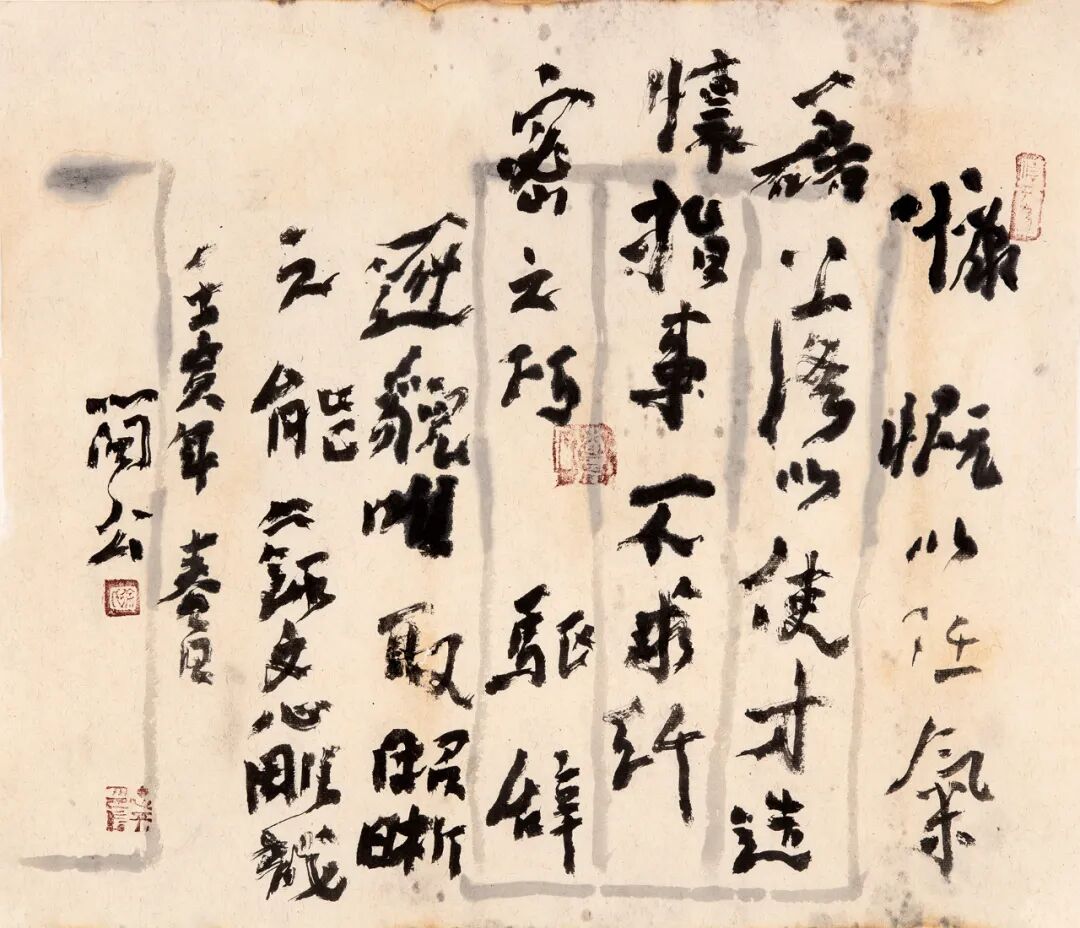 慷慨以任氣
磊落以使才造
懷指事不求纤
密之巧驅辞
逐貌唯取昭晰
之能錄文心雕龍
壬寅年春月
公